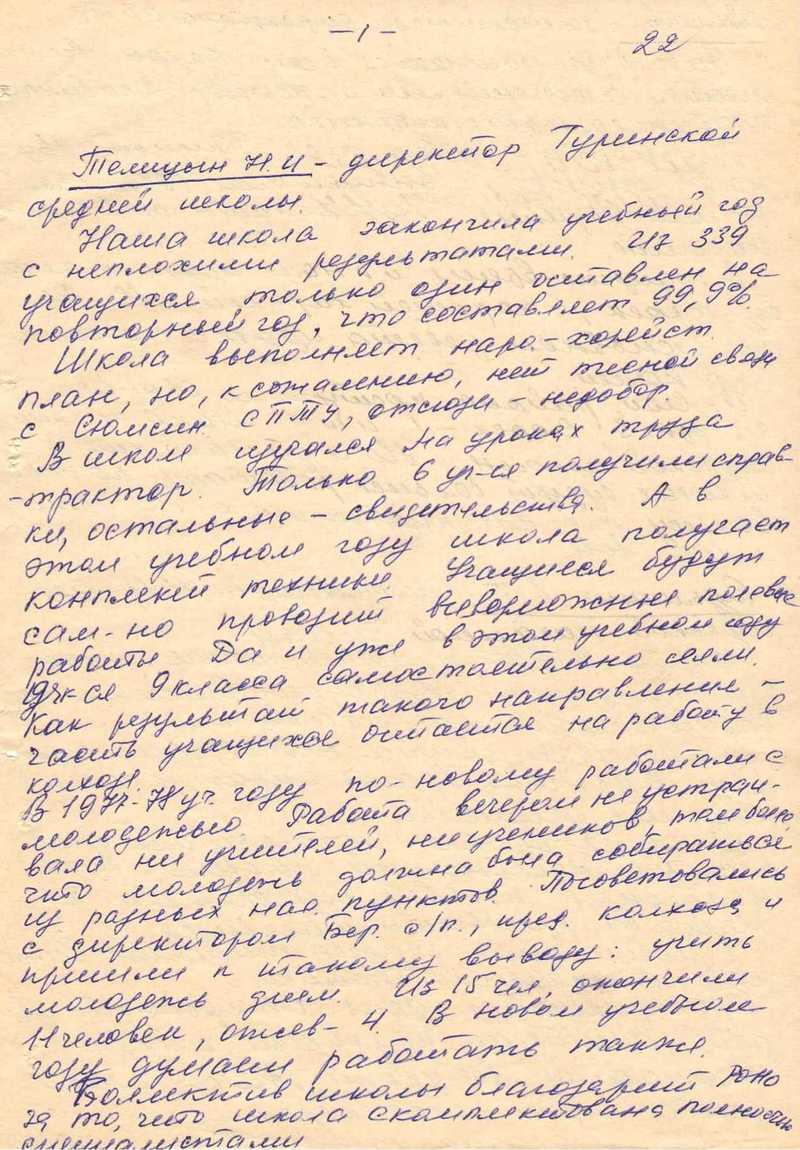 – 1 –
22
Телицын Н.И – директор Туринской
средней школы.
Наша школа закончила учебный год
с неплохими результатами. Из 339
учащихся только один оставлен на
повторный год, что составляет 99,9%.
Школа выполняет наро-хозяйст.
план, но, к сожалению, нет тесной связи
с Сюмсин. СПТУ, отсюда – недобор.
В школе изучался на уроках труда
-трактор. Только 6 уч-ся получили справ-
ки, остальные – свидетельства. А в
этом учебном году школа получает
комплект техники. Учащиеся будут
сам-но проводит всевозможные полевые
работы. Да и уже в этом учебном году
уч-ся 9 класса самостоятельно сеяли.
Как результат такого направления –
часть учащихся остается на работу в
колхозе.
В 1977-78 уч. году по-новому работали с
молодежью. Работа вечером не устраи-
вала ни учителей, ни учеников, тем более
что молодежь должна была собираться
из разных нас. пунктов. Посоветовались
с директором Вер. с/п., пред. колхоза и
пришли к такому выводу: учить
молодежь днем. Из 15 чел, окончили
11 человек, отсев – 4. В новом учебном
году думаем работать также.
Коллектив школы благодарит РОНО
за то, что школа скомплектована полностью
специалистами